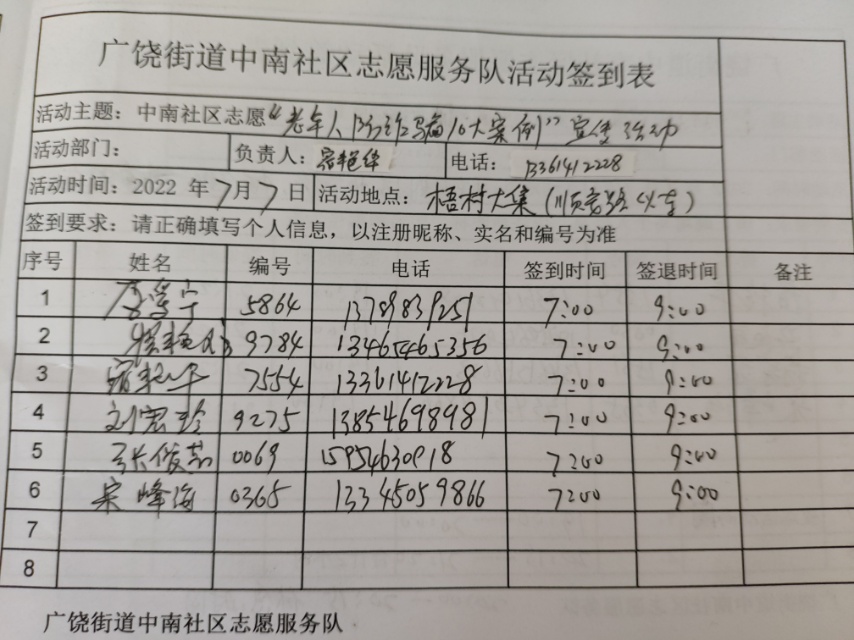 广饶街道中南社区志愿服务队活动签到表
活动主题：中南社区志愿“老年人防诈骗10大案例”宣传活动
活动部门： 负责人：宿艳华 电话：13361412228
活动时间：2022 年7月7日 活动地点：梧村大集（顺安路以东）
签到要求：请正确填写个人信息，以注册昵称、实名和编号为准
序号 姓名 编号 电话 签到时间 签退时间 备注
1 5864 13789839251 7:00 9:00
2 9784 13465465356 7:00 9:00
3 宿艳华 7554 13361412228 7:00 9:00
4 刘宏玲 9275 13854698981 7:00 9:00
5 张俊茹 0069 7:00 9:00
6 宋峰海 0365 13345059866 7:00 9:00
7
8
广饶街道中南社区志愿服务队